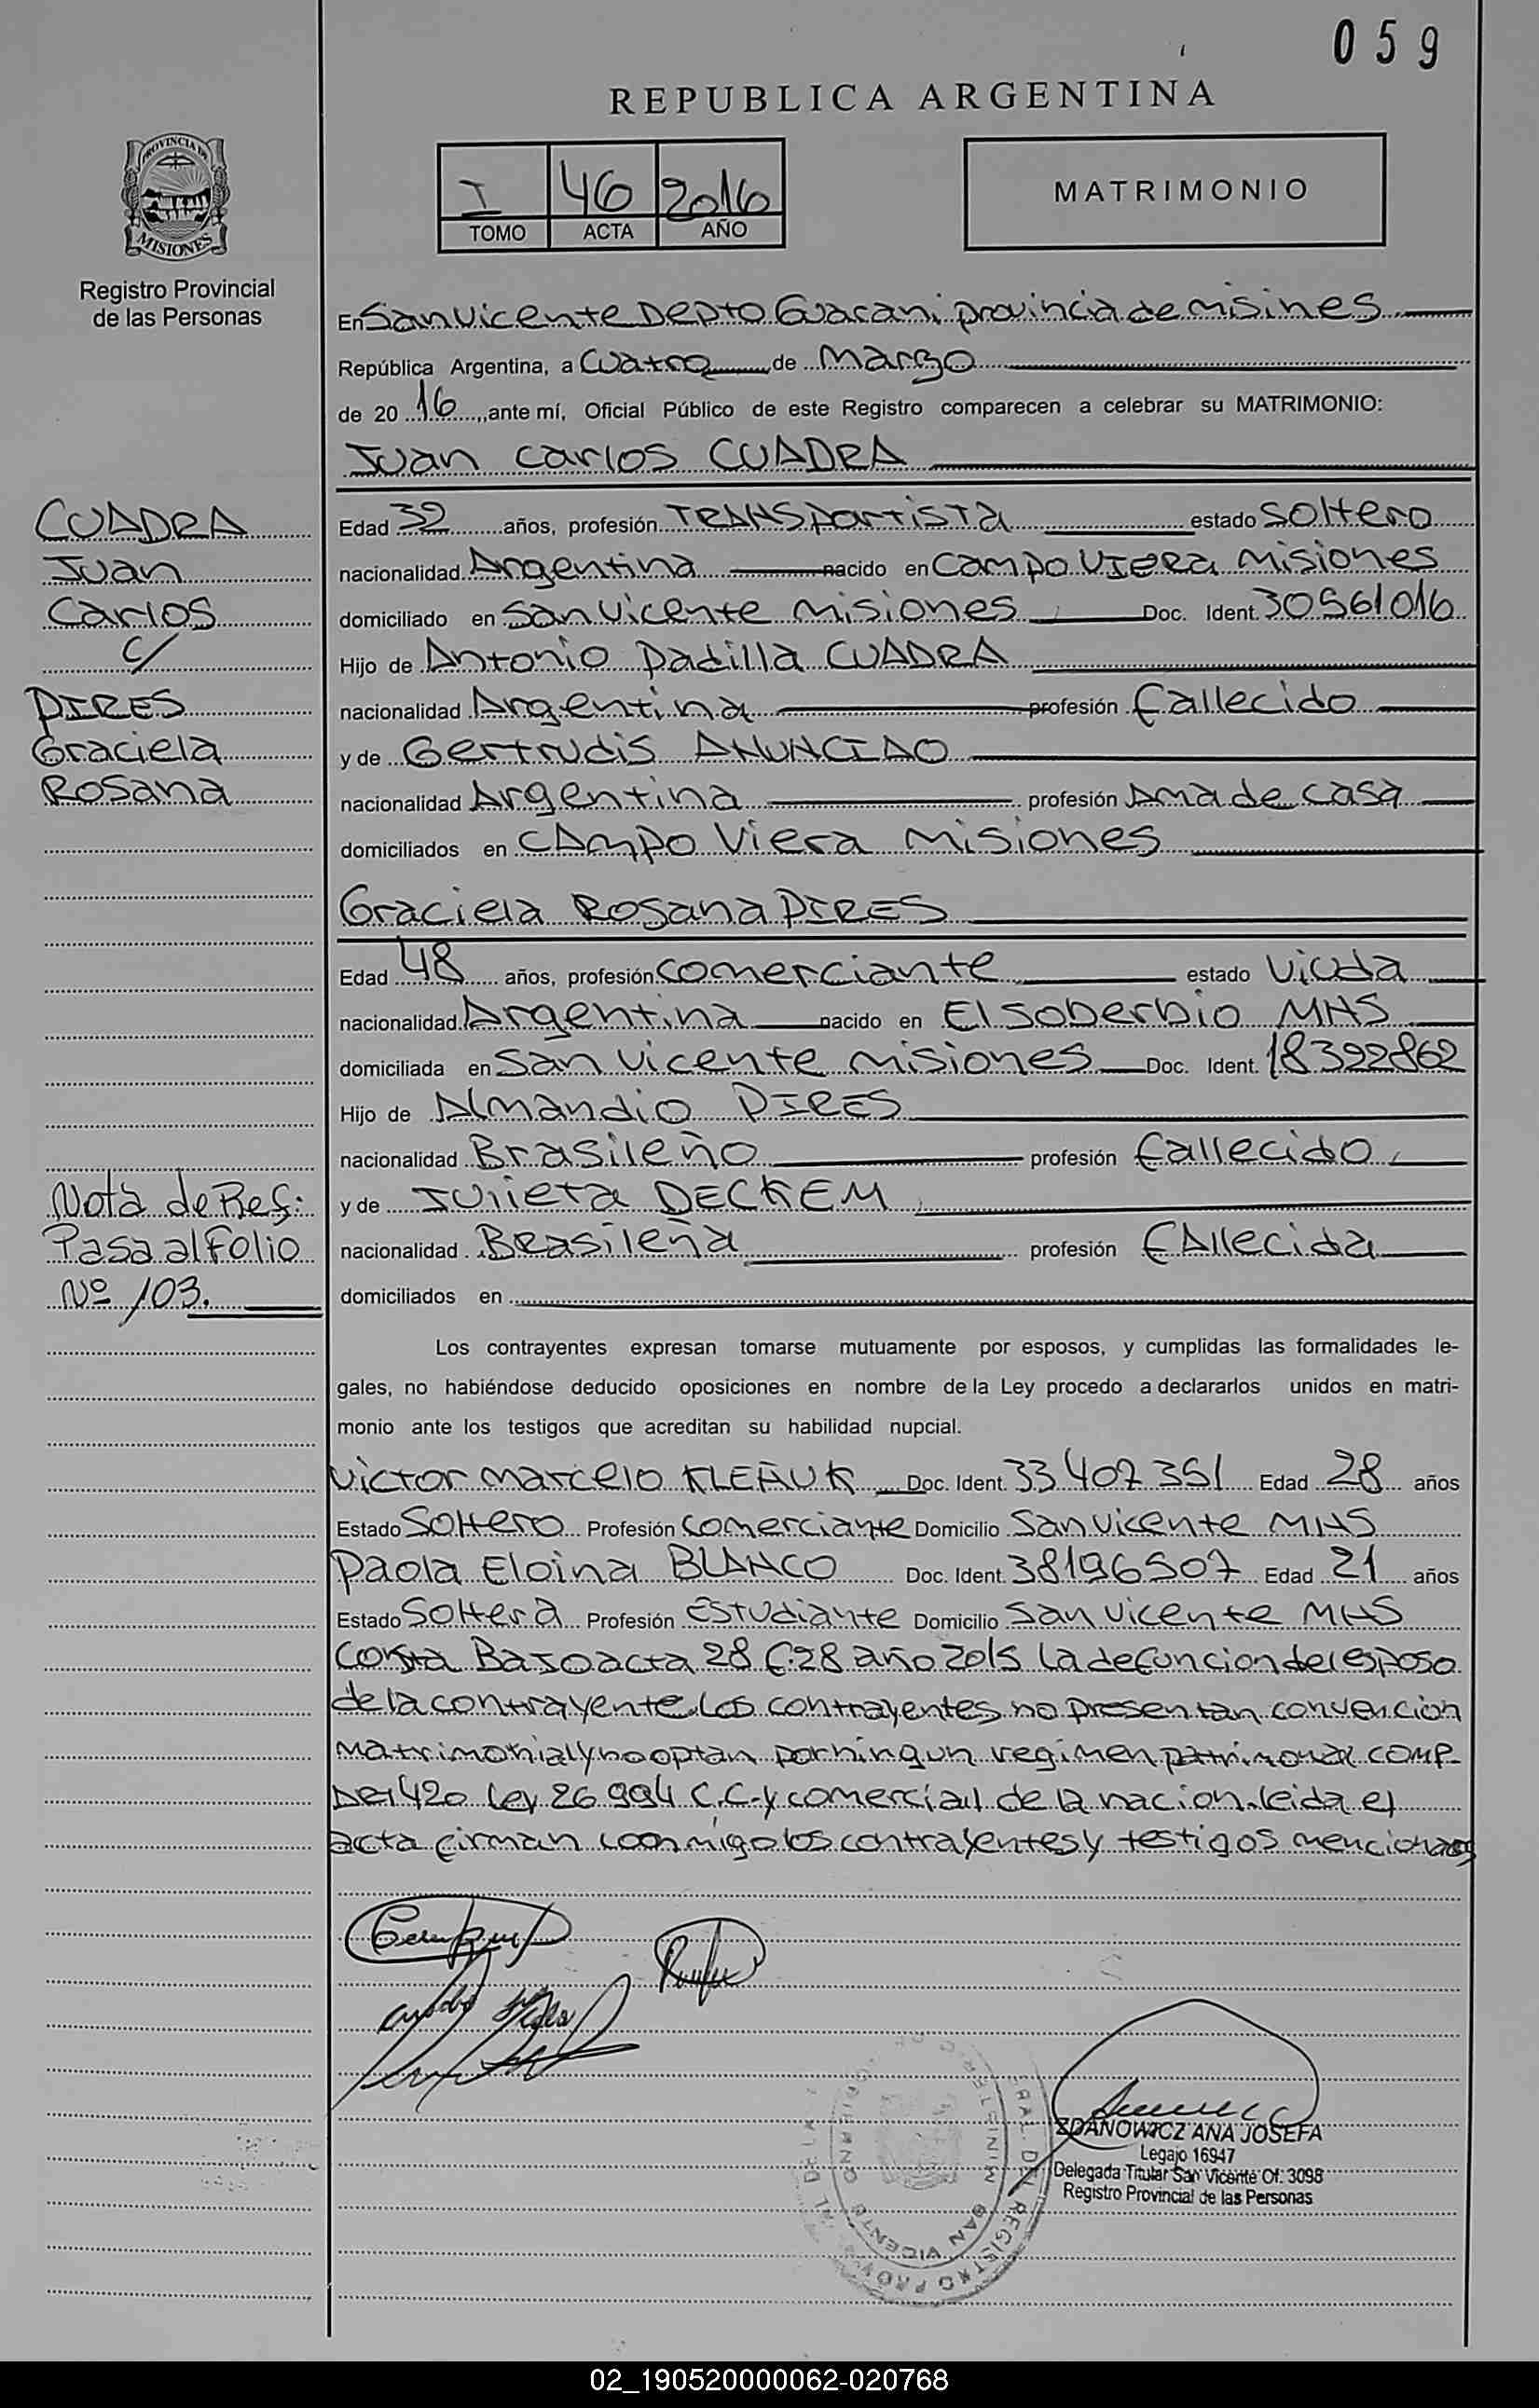 059
REPUBLICA ARGENTINA
PROVINCIA DE
MISIONES
Registro Provincial
de las Personas
I 46 2016
TOMO ACTA AÑO
MATRIMONIO
En San Vicente Depto Guarani provincia de misines
República Argentina, a Cuatro de Marzo
de 20 16, ante mí, Oficial Público de este Registro comparecen a celebrar su MATRIMONIO:
Juan Carlos CUADRA
CUADRA
Juan
Carlos
c/
PIRES
Graciela
Rosana
Edad 32 años, profesión Transportista estado Soltero
nacionalidad Argentina nacido en Campo Viera Misiones
domiciliado en San Vicente Misiones Doc. Ident. 30561016
Hijo de Antonio Padilla CUADRA
nacionalidad Argentina profesión fallecido
y de Gertrudis ANUNCIAO
nacionalidad Argentina profesión Ama de casa
domiciliados en Campo Viera Misiones
Graciela Rosana PIRES
Edad 48 años, profesión comerciante estado Viuda
nacionalidad Argentina nacido en El Soberbio MNS
domiciliada en San Vicente Misiones Doc. Ident. 18392862
Hijo de Almandio PIRES
nacionalidad Brasileño profesión fallecido
y de Julieta DECKEM
nacionalidad Brasileña profesión fallecida
domiciliados en
Nota de Ref:
Pasa al Folio
Nº 103.
Los contrayentes expresan tomarse mutuamente por esposos, y cumplidas las formalidades le-
gales, no habiéndose deducido oposiciones en nombre de la Ley procedo a declararlos unidos en matri-
monio ante los testigos que acreditan su habilidad nupcial.
Victor Marcelo KLEÑUK Doc. Ident. 33407351 Edad 28 años
Estado Soltero Profesión Comerciante Domicilio San Vicente MNS
Paola Eloina BLANCO Doc. Ident. 38196507 Edad 21 años
Estado Soltera Profesión Estudiante Domicilio San Vicente MNS
Consta Bajo acta 28 f.28 año 2015 la defuncion del esposo
de la contrayente. Los contrayentes no presentan convencion
matrimonial y no optan por ningun regimen patrimonial comp.
Del 420 Ley 26994 C.C. y comercial de la nacion. leida el
acta firman conmigo los contrayentes y testigos mencionados
ZDANOWICZ ANA JOSEFA
Legajo 16947
Delegada Titular San Vicente Of. 3098
Registro Provincial de las Personas
SAN VICENTE
02_190520000062-020768